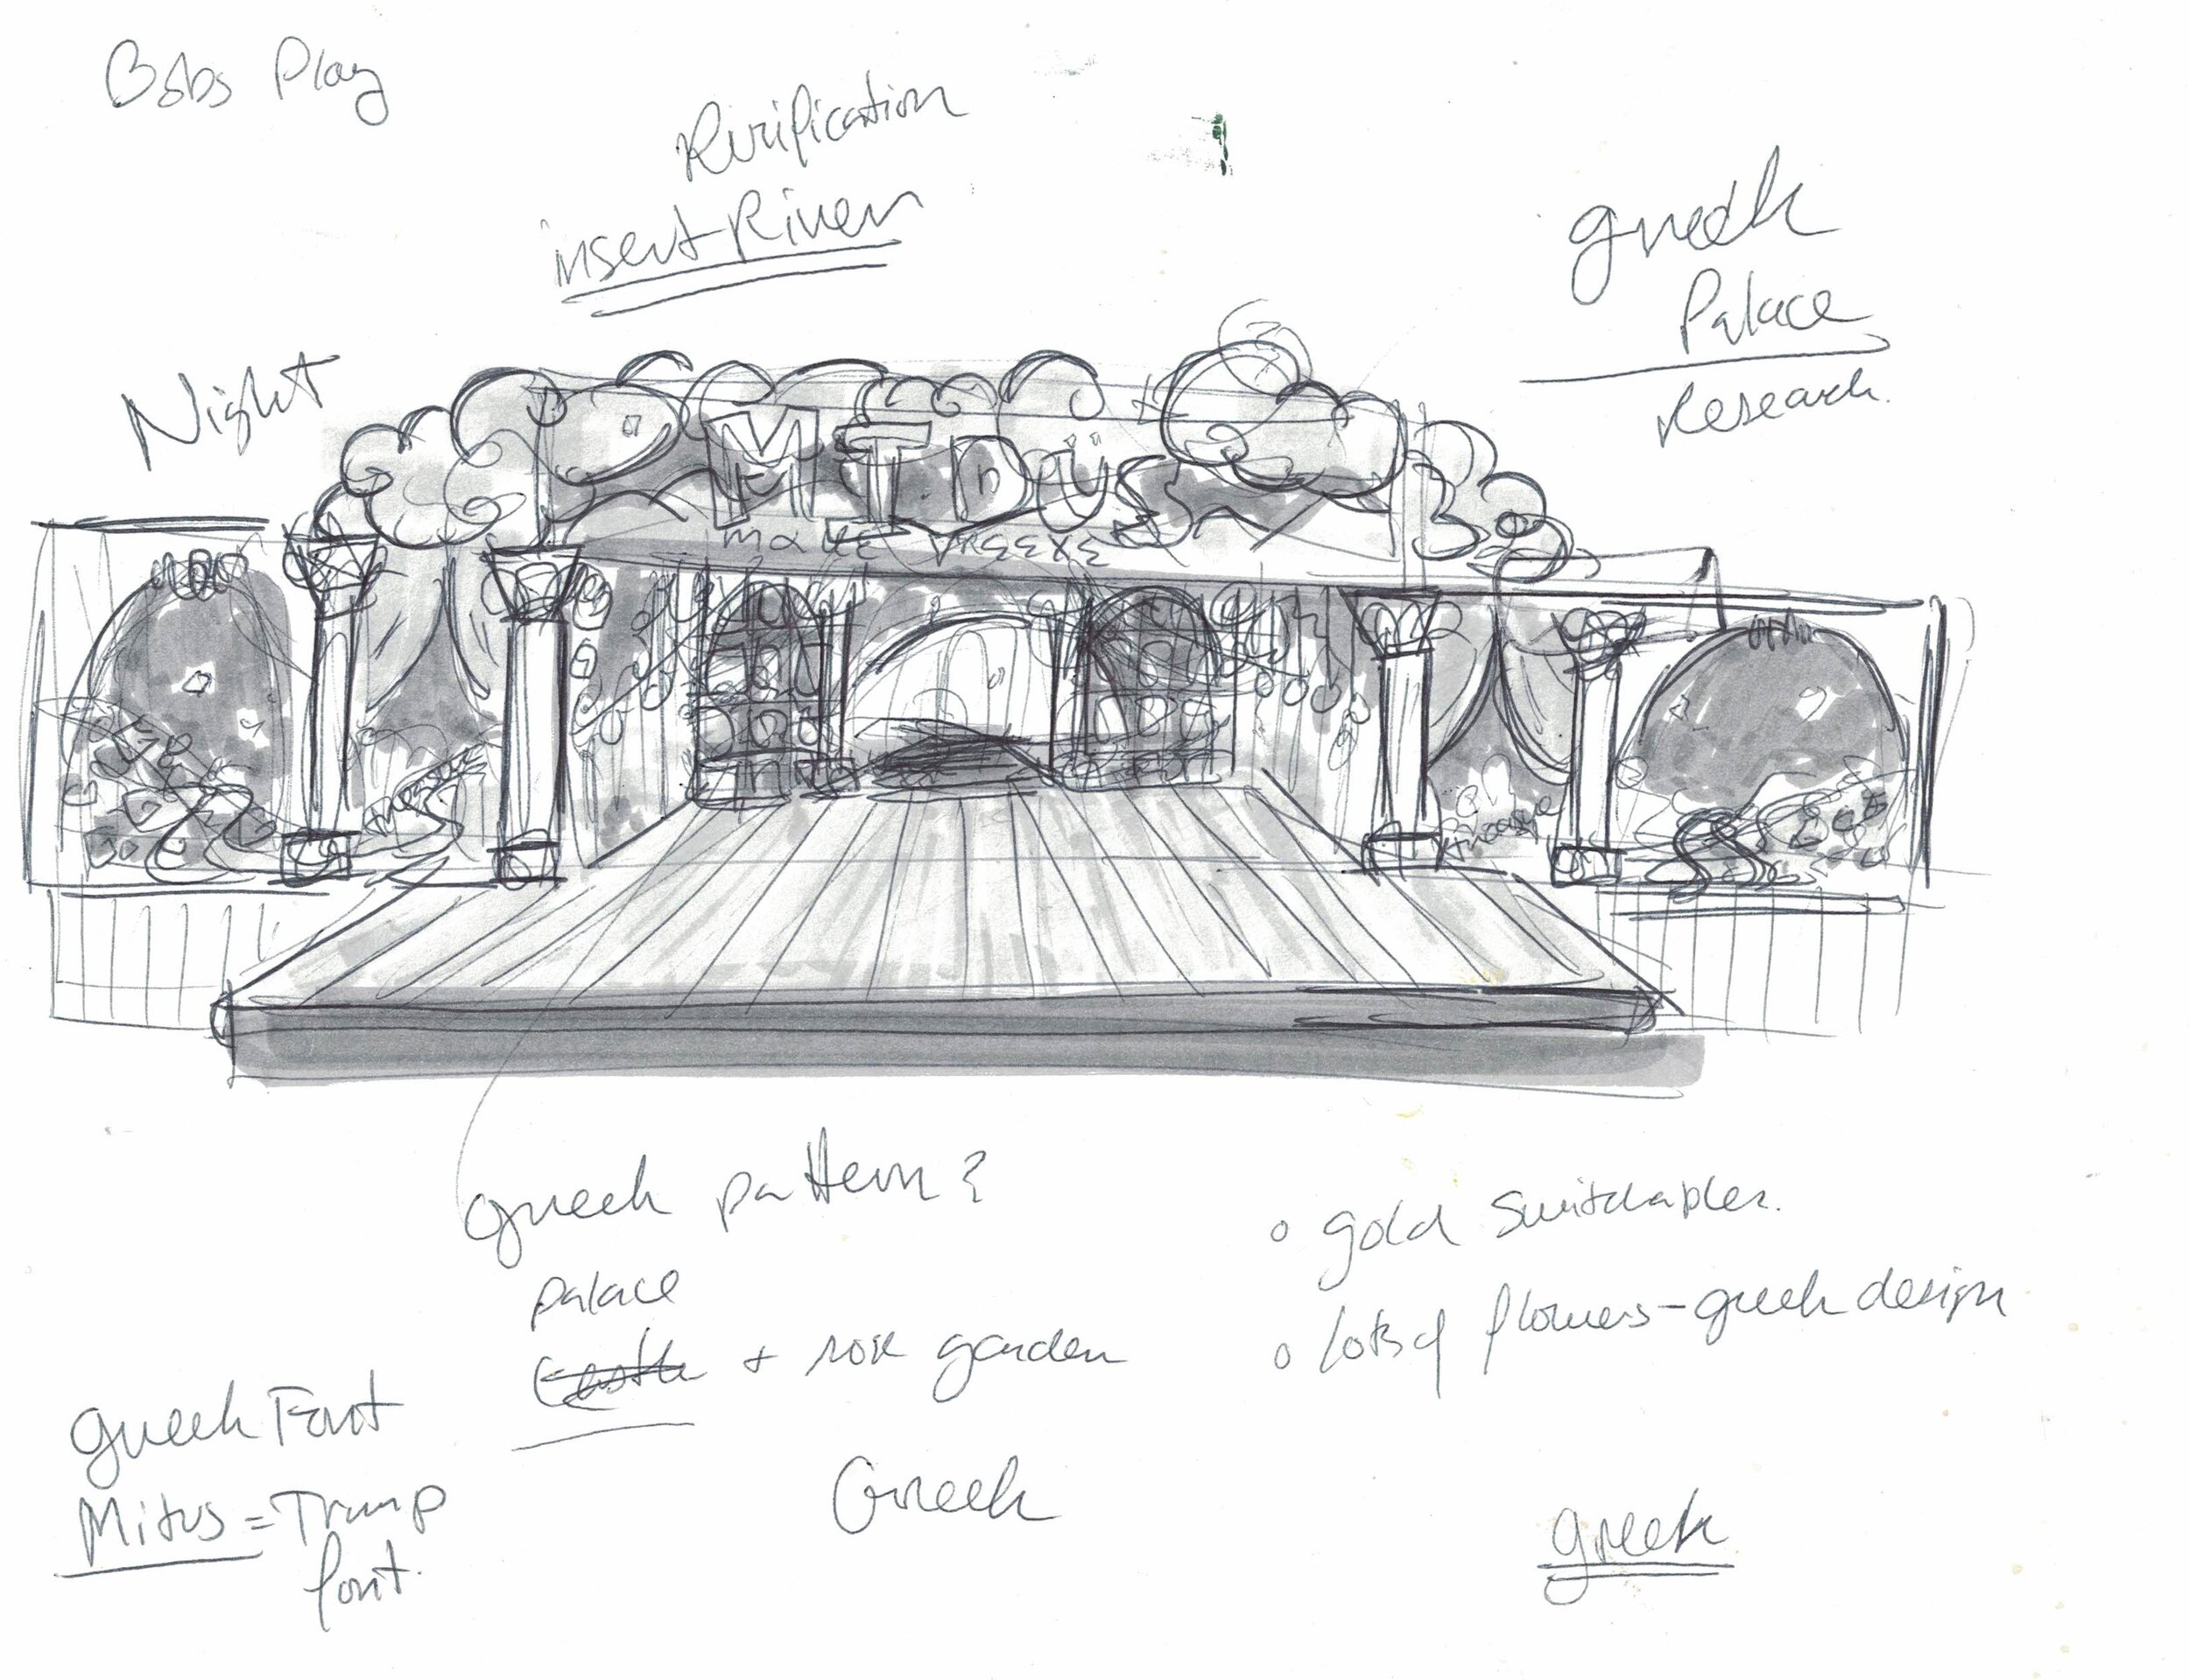 Bobs Play
Purification
insert River
Greek
Palace
Research.
Night
MIDÜS
MAKE GREEKE
greek pattern?
palace
+ rose garden
• gold switchables.
• lots of flowers - greek design
greek Font
Mitus = Trump
font.
Greek
greek